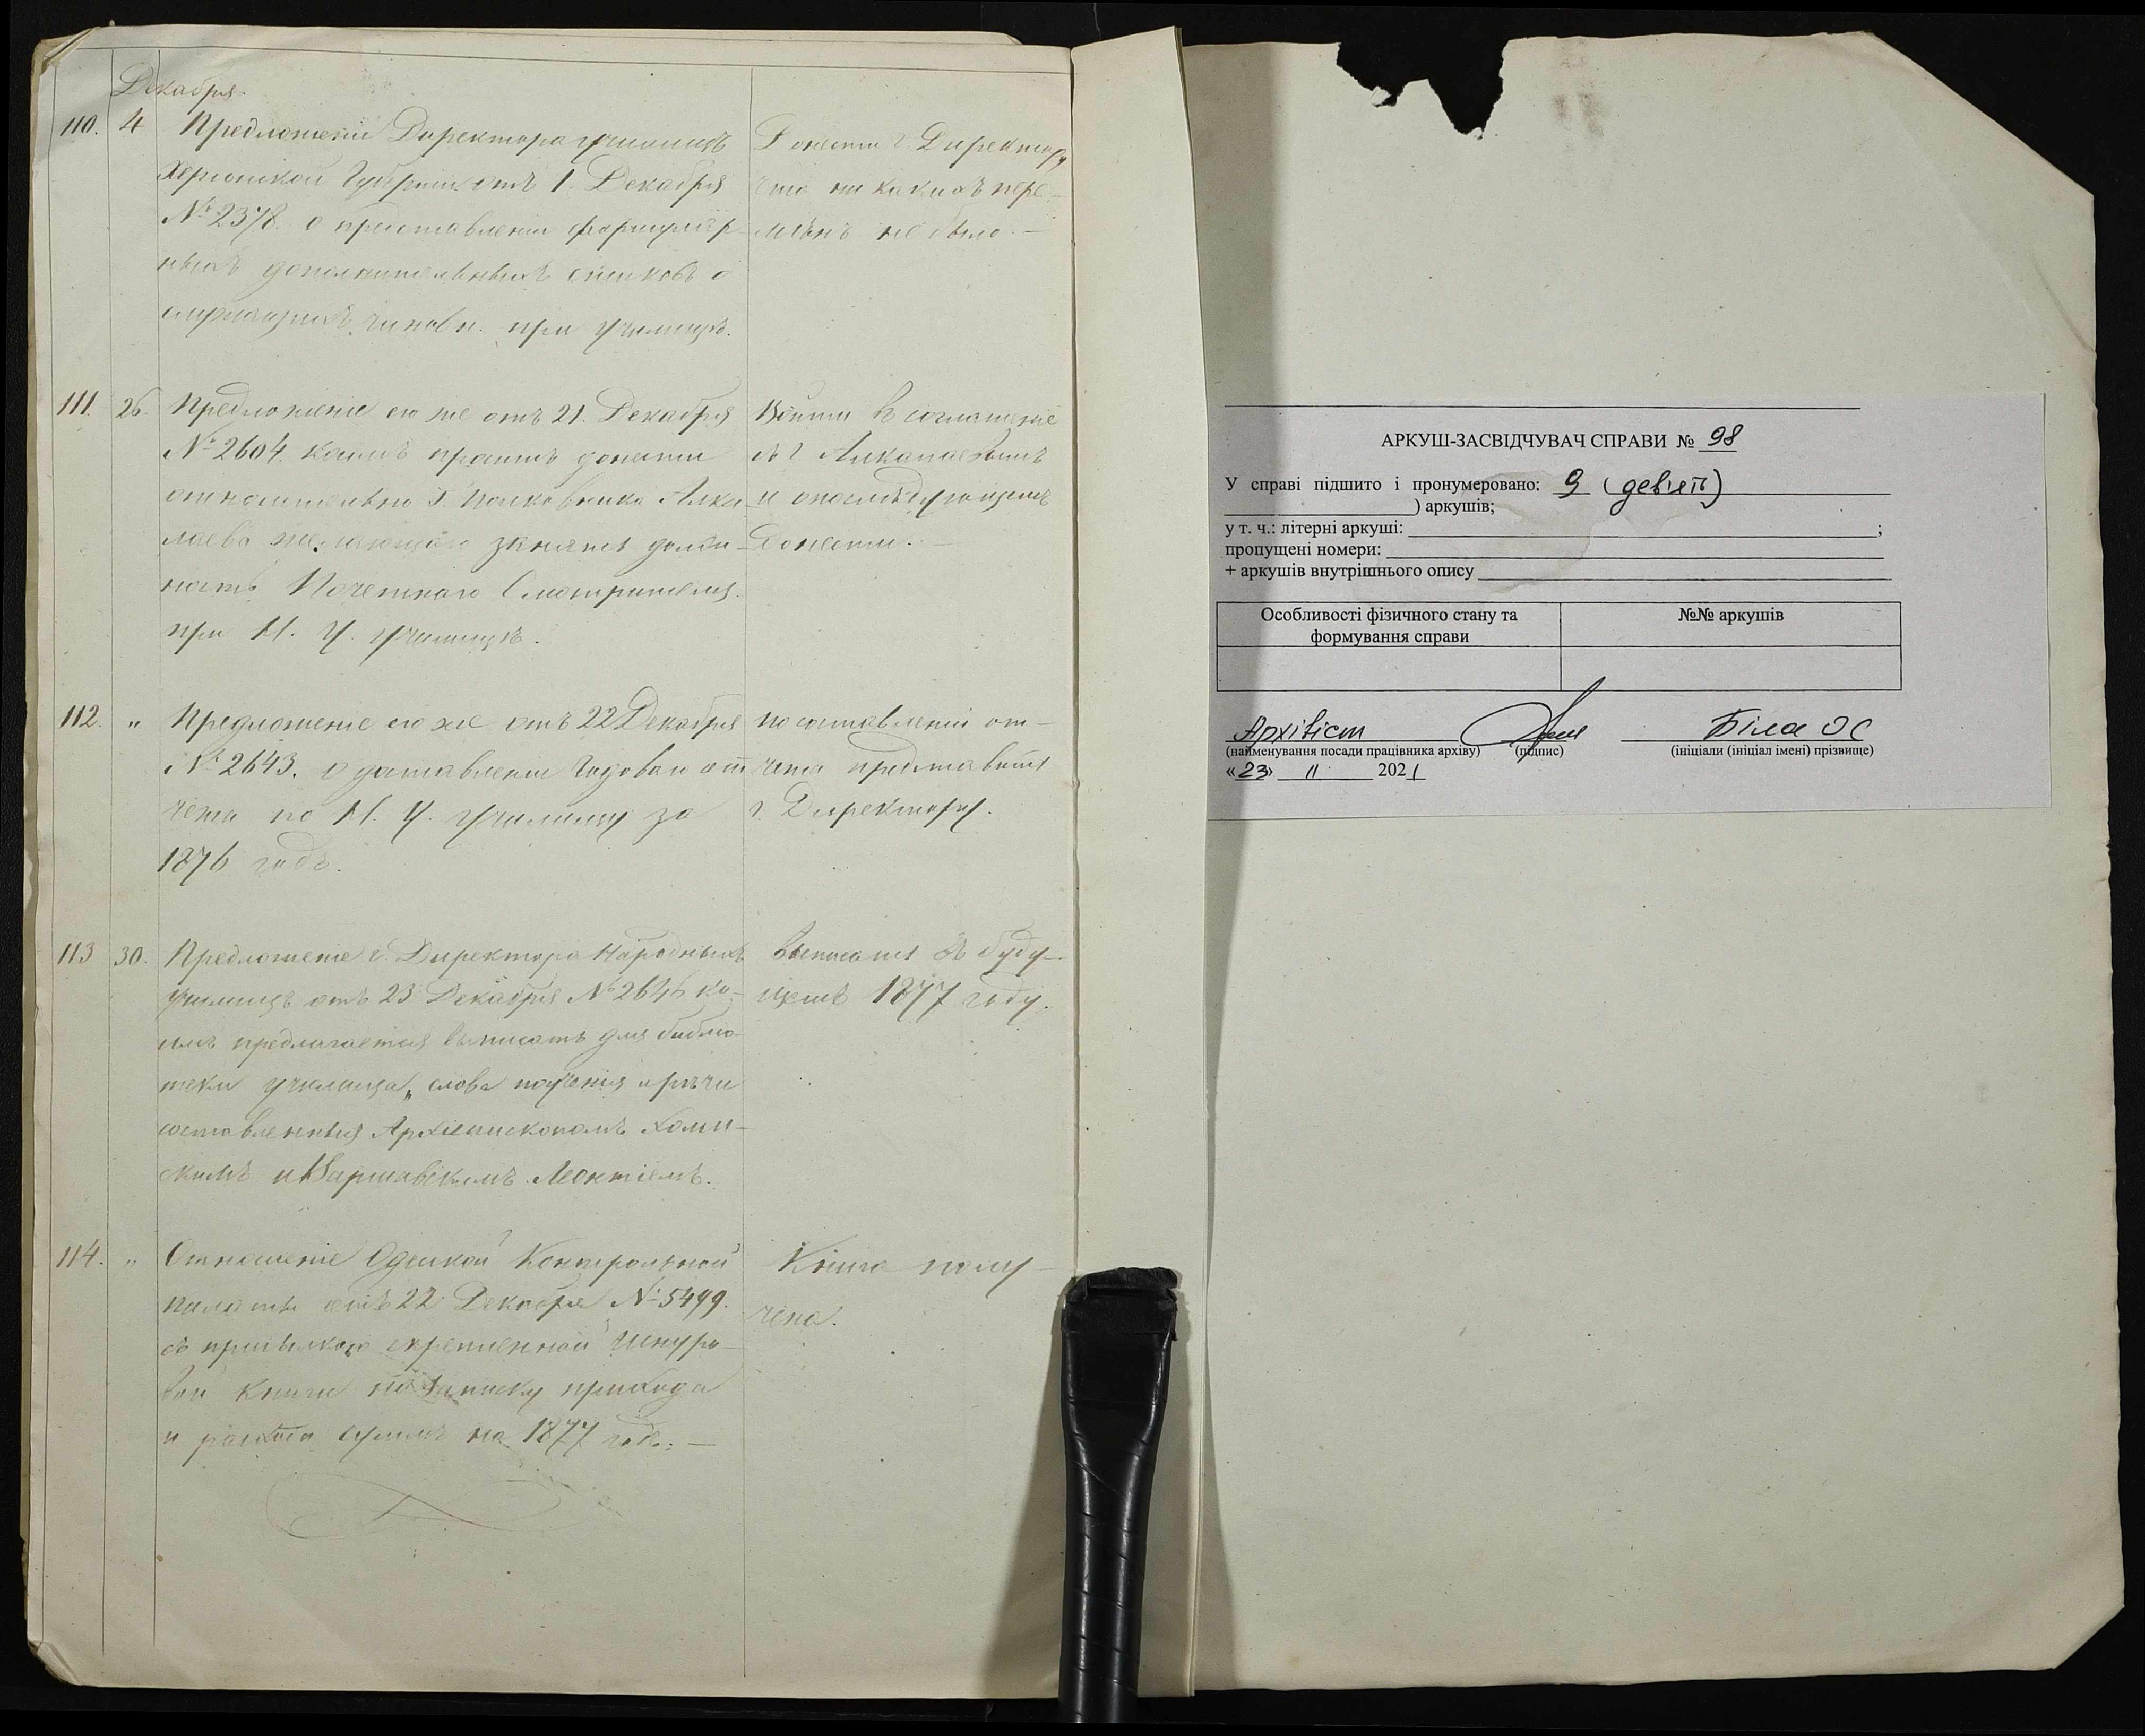 Декабря.
110. 4 Предложенiе Директора училищъ
Херсонской Губернiи отъ 1. Декабря
№ 2378. о представленiи формуляр-
ныхъ дополнительныхъ списковъ о
служащихъ чиновн. при училищѣ.
Донести г. Директору,
что ни какихъ пере-
мѣнъ не было. —
111. 26. Предложенiе его же отъ 21. Декабря
№ 2604. коимъ проситъ донести
относительно Г. Полковника Алка-
лаева желающаго занять долж-
ность Почетнаго Смотрителя
при Н. У. училищѣ.
Войти въ соглашенiе
съ г. Алкалаевымъ
и о послѣдующемъ
донести. —
112. " Предложенiе его же отъ 22 Декабря
№ 2643. о доставленiи Годоваго от
чета по Н. У. училищу за
1876 годъ.
по составленiи от-
чета представить
г. Директору.
113 30. Предложенiе г. Директора Народныхъ
училищъ отъ 23 Декабря № 2646 ко-
имъ предлагается выписать для библiо-
теки училища „слова поученiя и рѣчи
составленныя Архiепископомъ Холм-
скимъ и Варшавскимъ Леонтiемъ.
Выписать въ буду-
щемъ 1877 году.
114. " Отношенiе Одесской Контрольной
палаты отъ 22 Декабря № 5499.
съ присылкою скрепленной шнуро-
вой книги на записку прихода
и расхода суммъ на 1877 годъ. —
Книга полу-
чена.
АРКУШ-ЗАСВІДЧУВАЧ СПРАВИ № 98
У справі підшито і пронумеровано: 9 (дев'ять)
) аркушів;
у т. ч.: літерні аркуші: ;
пропущені номери:
+ аркушів внутрішнього опису
Особливості фізичного стану та формування справи
№№ аркушів
Архівіст Біла ОС
(найменування посади працівника архіву) (підпис) (ініціали (ініціал імені) прізвище)
«23» 11 2021